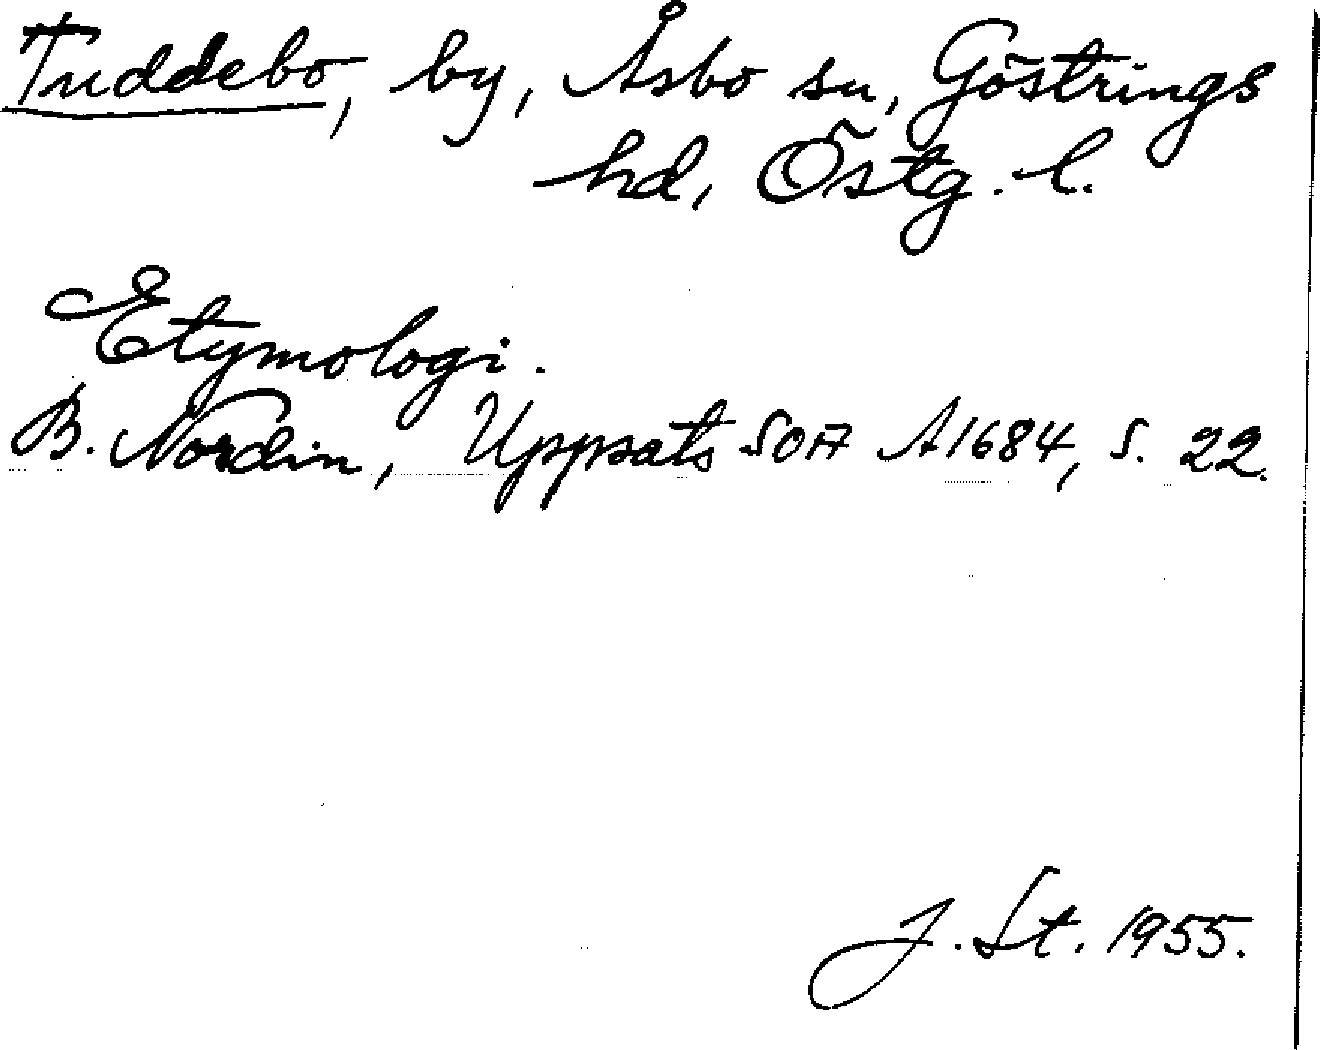 Tuddebo, by, Åsbo sn, Göstrings
hd, Östg. l.
Etymologi.
B. Nordin, Uppsats SOA A1684, s. 22.
J. St. 1955.